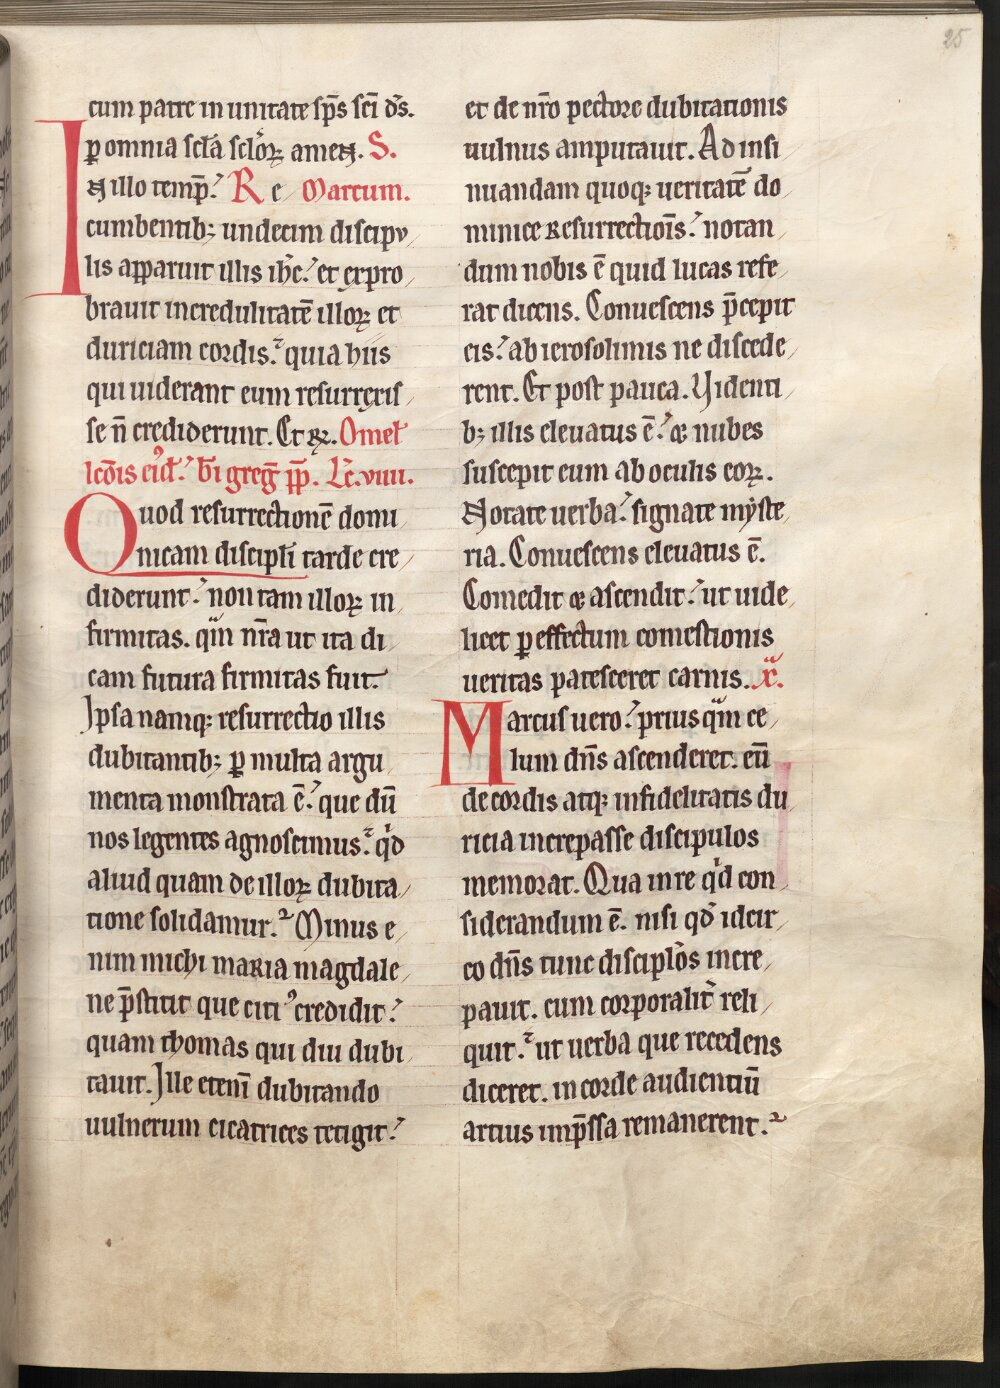 25
cum patre in unitate sp̄s sc̄i ds̄.
ꝑ omnia scl̄a scl̄oꝝ amen. S.
In illo temp̄. Re Marcum.
cumbentib; undecim discipu
lis apparuit illis ihc̄. et expro
brauit incredulitatē illoꝝ et
duriciam cordis. quia hiis
qui uiderant eum resurrexis
se n̄ crediderunt. Et rꝝ. Omel
lcōis eiꝰd. bī greḡ pp̄. Lc̄. viiii.
Quod resurrectionē domi
nicam discipl̄i tarde cre
diderunt. non tam illoꝝ in
firmitas. qm̄ nr̄a ut ita di
cam futura firmitas fuit.
Ipsa namqꝫ resurrectio illis
dubitantib; ꝑ multa argu
menta monstrata ē. que dū
nos legentes agnoscimus. qd̓
aliud quam de illoꝝ dubita
tione solidamur. Minus e
nim michi maria magdale
ne p̄stitit que citiꝰ credidit.
quam thomas qui diu dubi
tauit. Ille etenī dubitando
uulnerum cicatrices tetigit.
et de nr̄o pectore dubitationis
uulnus amputauit. Ad insi
nuandam quoqꝫ ueritatē do
minice resurrectiois̄. notan
dum nobis ē quid lucas refe
rat dicens. Conuescens p̄cepit
eis. ab ierosolimis ne discede
rent. Et post pauca. Videnti
b; illis eleuatus ē. & nubes
suscepit eum ab oculis eoꝝ.
Notate uerba. signate mẏste
ria. Conuescens eleuatus ē.
Comedit & ascendit. ut uide
licet ꝑ effectum comestionis
ueritas patesceret carnis. x̄.
Marcus uero. prius qm̄ ce
lum dn̄s ascenderet. eū
de cordis atqꝫ infidelitatis du
ricia increpasse discipulos
memorat. Qua in re qd̓ con
siderandum ē. nisi qd̓ idcir
co dn̄s tunc discipl̄os incre
pauit. cum corporalit̄ reli
quit. ut uerba que recedens
diceret. in corde audientiū
artius imp̄ssa remanerent.